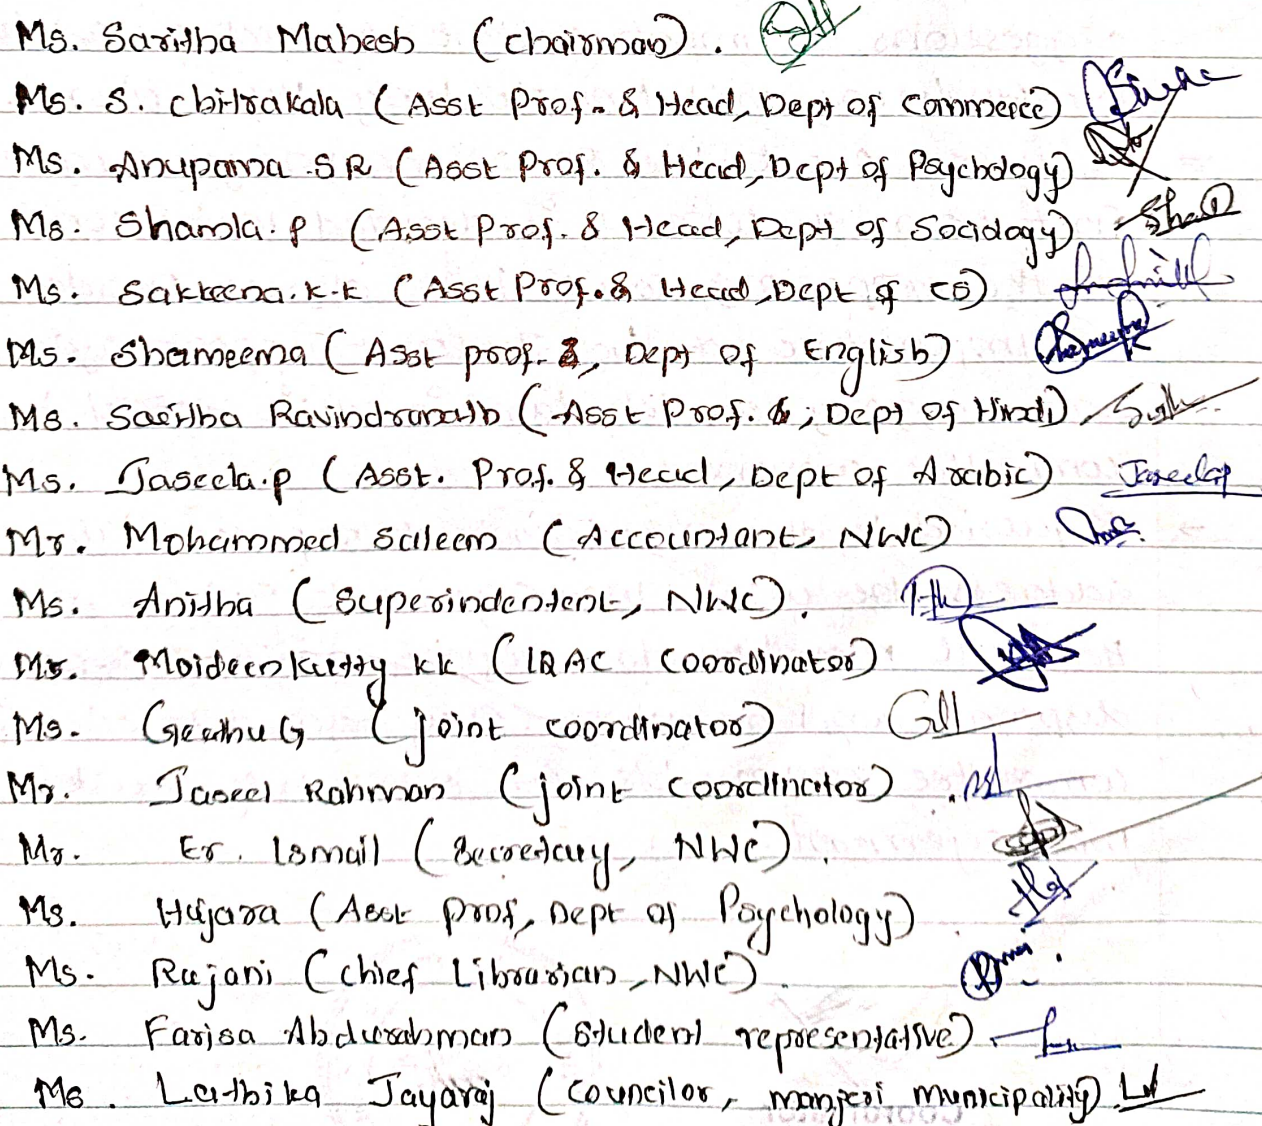 Ms. Saritha Mahesh (Chairman).
Ms. S. Chithrakala (Asst Prof. & Head, Dept of Commerce)
Ms. Anupama .S R (Asst Prof. & Head, Dept of Psychology)
Ms. Shamla. P (Asst Prof. & Head, Dept of Sociology) Sha
Ms. Sakkeena. K.K (Asst Prof. & Head, Dept of CS)
Ms. Shameema (Asst prof. &, Dept of English) Shameema
Ms. Saritha Ravindranath (Asst Prof. &, Dept of Hindi)
Ms. Jaseela.p (Asst. Prof. & Head, Dept of Arabic) Jaseelap
Mr. Mohammed Saleem (Accountant, NWC)
Ms. Anitha (Superindentent, NWC).
Mr. Moideenkutty KK (IQAC Coordinator)
Ms. Geethu G (joint coordinator)
Mr. Jaseel Rahman (joint Coordinator)
Mr. Er. Ismail (Secretary, NWC).
Ms. Hajara (Asst prof, Dept of Psychology)
Ms. Rajani (Chief Librarian, NWC).
Ms. Farisa Abdurahman (Student representative)
Ms. Lathika Jayaraj (Councilor, manjeri municipality)